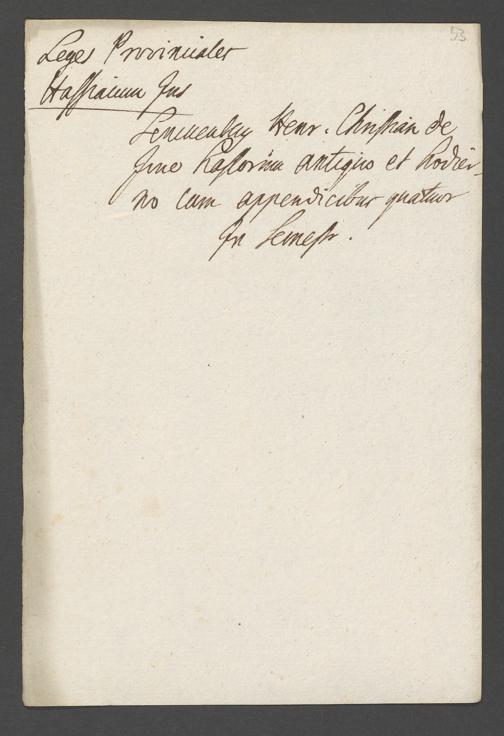 53
Leges Provinciales
Hassiacum Jus
Henr. Christian de
Jure Hassorum antiquo et hodier-
no cum appendicibus quatuor
In Semestr.